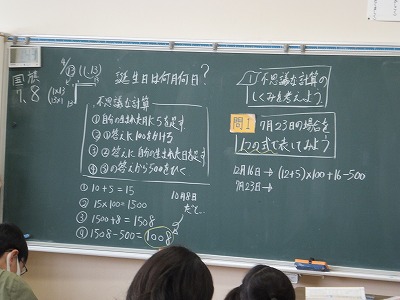 4/13(11.13)
誕生日は何月何日?
国旗
7、8
不思議な計算
①自分の生まれた月に5を足す
②①の答えに100をかける
③②の答えに自分の生まれた日を足す
④③の答えから500をひく
① 10+5=15
② 15×100=1500
③ 1500+8=1508
④ 1508-500=1008
10月8日
だと…
不思議な計算の
しくみを考えよう
問1 7月23日の場合を
1つの式で表してみよう
12月16日→(12+5)×100+16-500
7月23日→